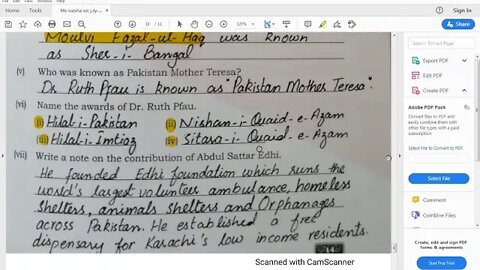 Ms nabiha sst july-...
Moulvi Fazal-ul-Haq was known
as Sher-i-Bangal
(v) Who was known as Pakistan Mother Teresa?
Dr. Ruth Pfau is known as "Pakistan Mother Teresa".
(vi) Name the awards of Dr. Ruth Pfau.
i) Hilal-i-Pakistan ii) Nishan-i-Quaid-e-Azam
iii) Hilal-i-Imtiaz iv) Sitara-i-Quaid-e-Azam
(vii) Write a note on the contribution of Abdul Sattar Edhi.
He founded Edhi foundation which runs the
world's largest volunteer ambulance, homeless
shelters, animals shelters and Orphanages
across Pakistan. He established a free
dispensary for Karachi's low income residents.
14
Scanned with CamScanner
Export PDF
Edit PDF
Create PDF
Adobe PDF Pack
Convert files to PDF and
easily combine them with
other file types with a paid
subscription
Select File to Convert to PDF
Select File
Comment
Combine Files
Create, edit and sign PDF
forms & agreements
Start Free Trial